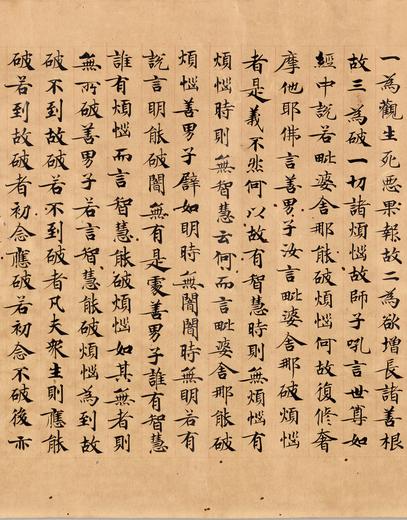 一為觀生死惡果報故二為欲增長諸善根
故三為破一切諸煩惱故師子吼言世尊如
經中說若毗婆舍那能破煩惱何故復修奢
摩他耶佛言善男子汝言毗婆舍那破煩惱
者是義不然何以故有智慧時則無煩惱有
煩惱時則無智慧云何而言毗婆舍那能破
煩惱善男子譬如明時無闇闇時無明若有
說言明能破闇無有是處善男子誰有智慧
誰有煩惱而言智慧能破煩惱如其無者則
無所破善男子若言智慧能破煩惱為到故
破不到故破若不到破者凡夫眾生則應能
破若到故破者初念應破若初念不破後亦